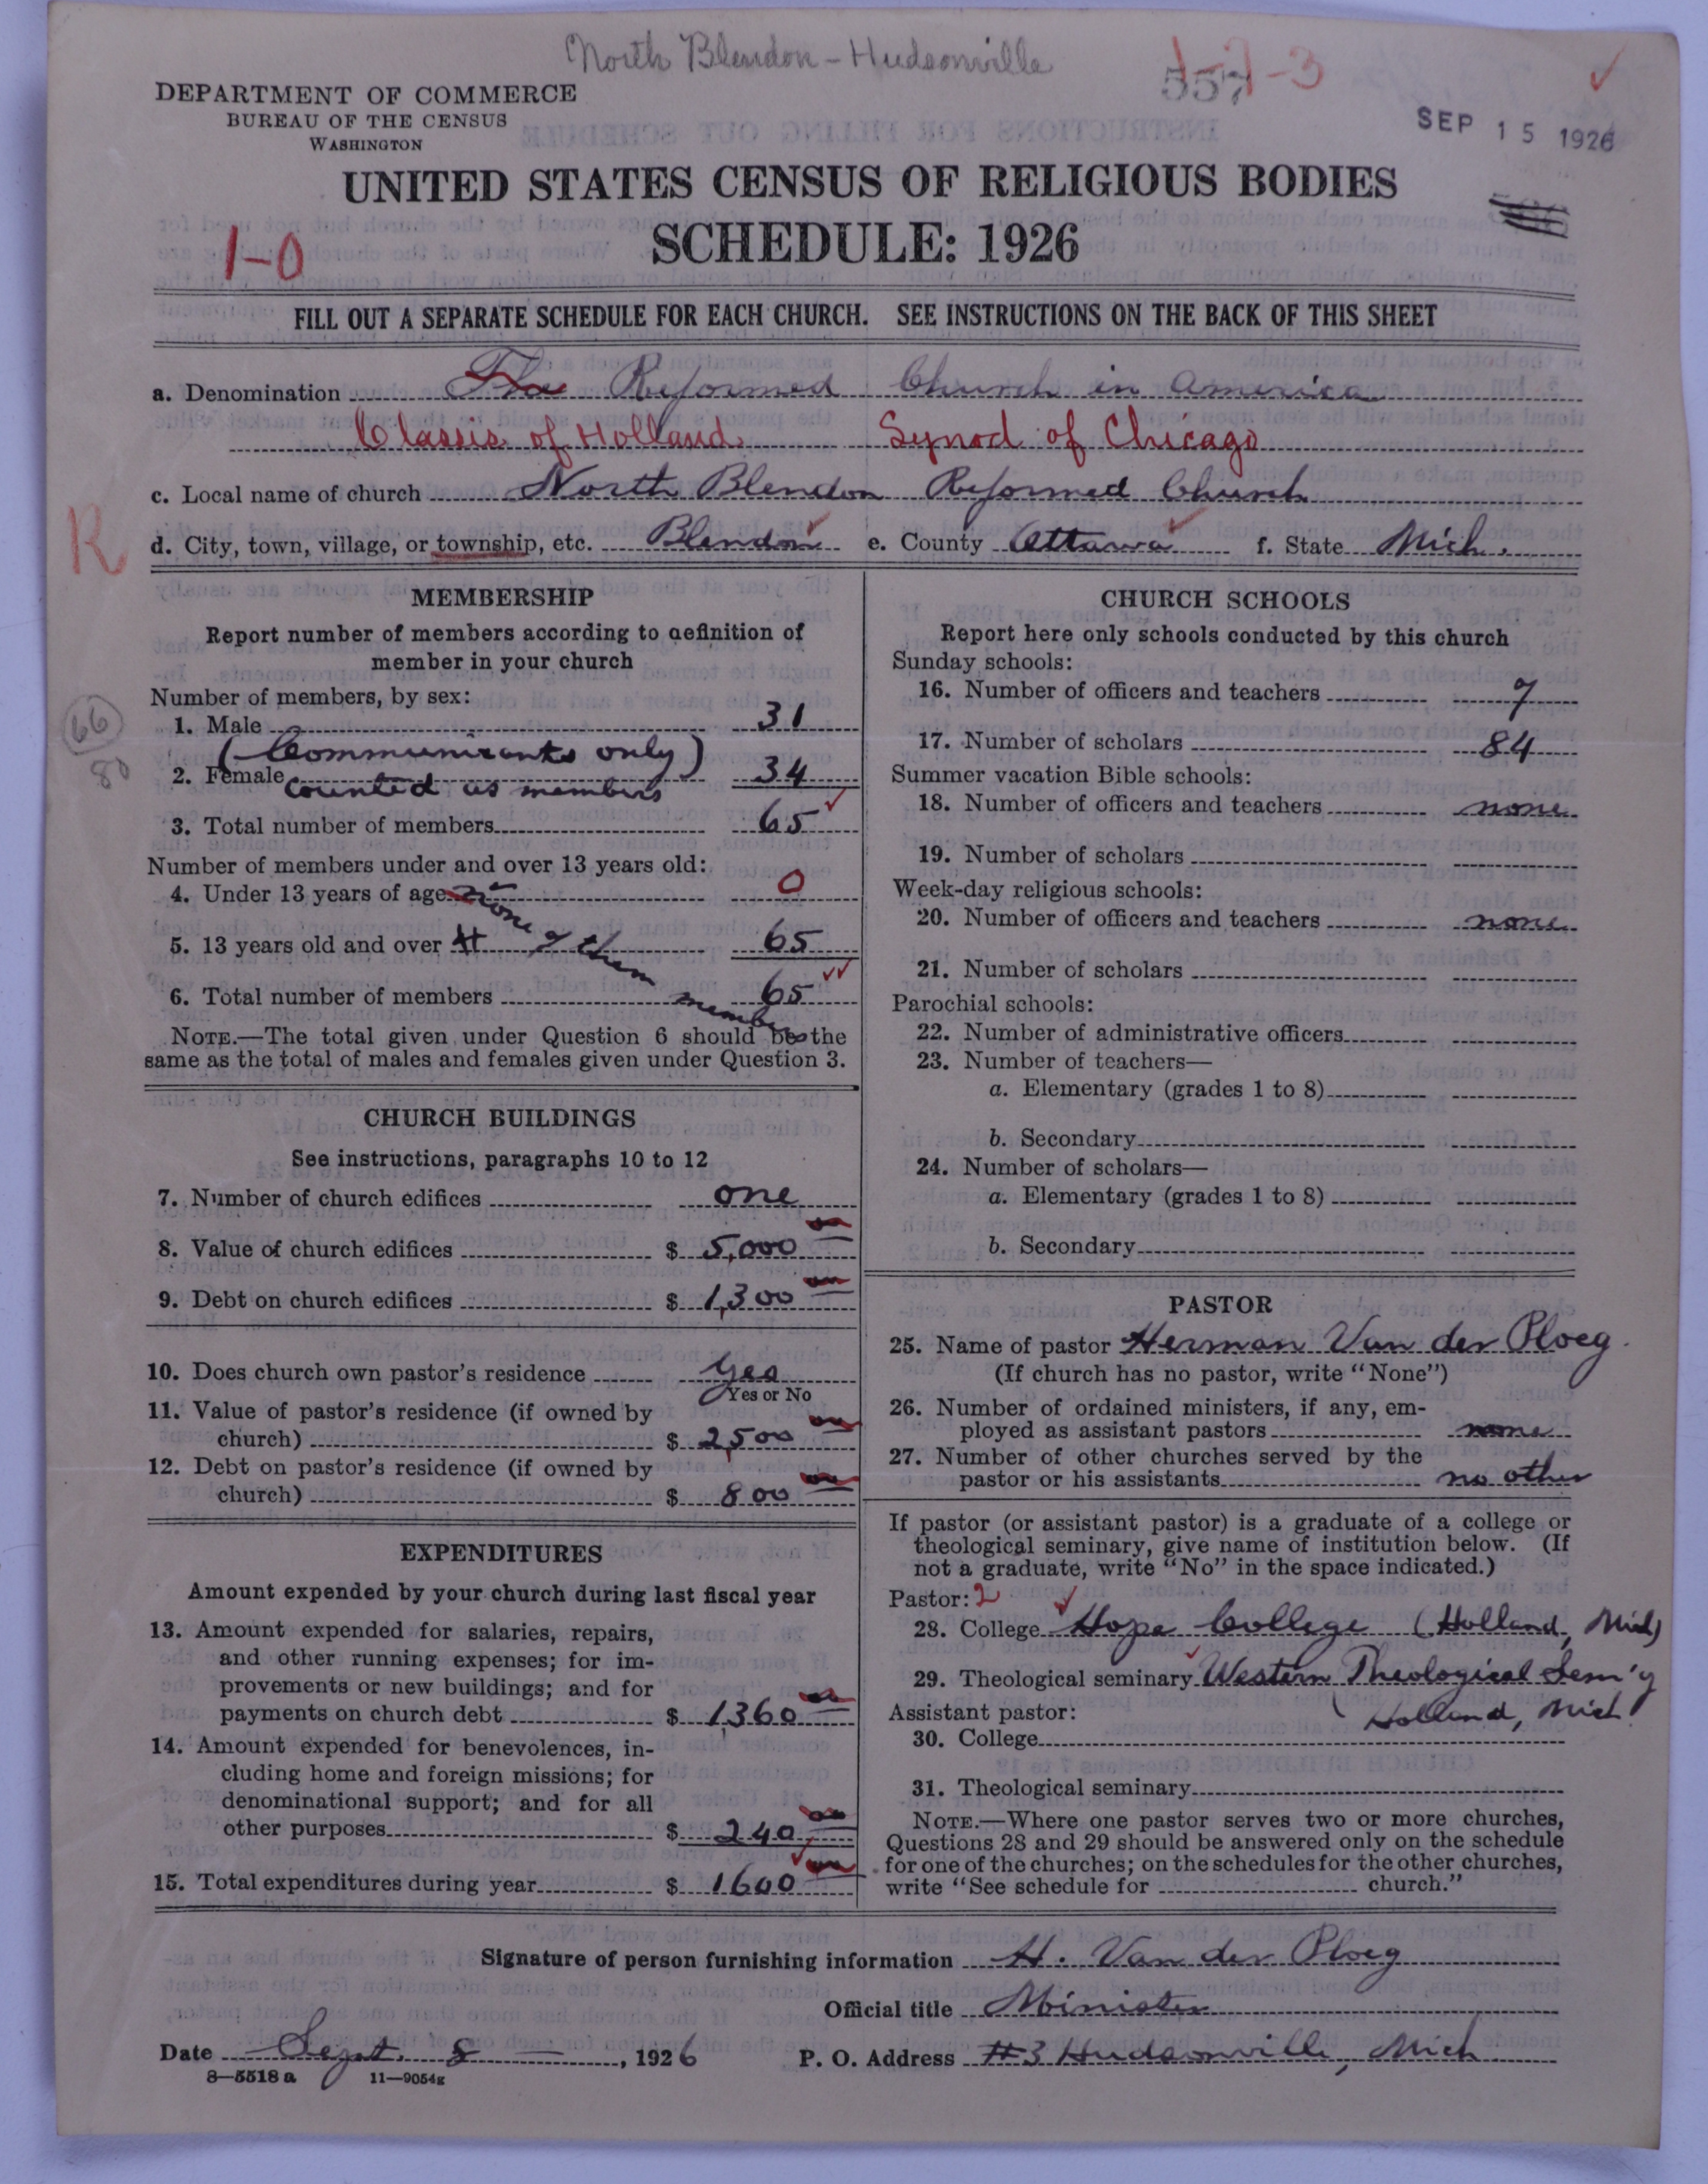 North Blendon - Hudsonville
1-2-3
557
DEPARTMENT OF COMMERCE
BUREAU OF THE CENSUS
WASHINGTON
SEP 15 1926
UNITED STATES CENSUS OF RELIGIOUS BODIES
SCHEDULE: 1926
1-0
FILL OUT A SEPARATE SCHEDULE FOR EACH CHURCH. SEE INSTRUCTIONS ON THE BACK OF THIS SHEET
a. Denomination The Reformed Church in America
Classis of Holland. Synod of Chicago
c. Local name of church North Blendon Reformed Church
R
d. City, town, village, or township, etc. Blendon e. County Ottawa f. State Mich.
MEMBERSHIP
Report number of members according to definition of
member in your church
Number of members, by sex:
66
80
1. Male 31
(Communicants only)
2. Female 34
counted as members
3. Total number of members 65
Number of members under and over 13 years old:
4. Under 13 years of age 0
none of them members
5. 13 years old and over 65
6. Total number of members 65
NOTE.—The total given under Question 6 should be the
same as the total of males and females given under Question 3.
CHURCH BUILDINGS
See instructions, paragraphs 10 to 12
7. Number of church edifices one
8. Value of church edifices $ 5,000
9. Debt on church edifices $ 1,300
10. Does church own pastor's residence yes
Yes or No
11. Value of pastor's residence (if owned by
church) $ 2,500
12. Debt on pastor's residence (if owned by
church) $ 800
EXPENDITURES
Amount expended by your church during last fiscal year
13. Amount expended for salaries, repairs,
and other running expenses; for im-
provements or new buildings; and for
payments on church debt $ 1,360
14. Amount expended for benevolences, in-
cluding home and foreign missions; for
denominational support; and for all
other purposes $ 240
15. Total expenditures during year $ 1600
CHURCH SCHOOLS
Report here only schools conducted by this church
Sunday schools:
16. Number of officers and teachers 7
17. Number of scholars 84
Summer vacation Bible schools:
18. Number of officers and teachers none
19. Number of scholars
Week-day religious schools:
20. Number of officers and teachers none
21. Number of scholars
Parochial schools:
22. Number of administrative officers
23. Number of teachers—
a. Elementary (grades 1 to 8)
b. Secondary
24. Number of scholars—
a. Elementary (grades 1 to 8)
b. Secondary
PASTOR
25. Name of pastor Herman Van der Ploeg
(If church has no pastor, write "None")
26. Number of ordained ministers, if any, em-
ployed as assistant pastors none
27. Number of other churches served by the
pastor or his assistants no other
If pastor (or assistant pastor) is a graduate of a college or
theological seminary, give name of institution below. (If
not a graduate, write "No" in the space indicated.)
Pastor: 2
28. College Hope College (Holland, Mich)
29. Theological seminary Western Theological Sem'y
Assistant pastor: Holland, Mich
30. College
31. Theological seminary
NOTE.—Where one pastor serves two or more churches,
Questions 28 and 29 should be answered only on the schedule
for one of the churches; on the schedules for the other churches,
write "See schedule for church."
Signature of person furnishing information H. Van der Ploeg
Official title Minister
Date Sept. 8, 1926 P. O. Address #3 Hudsonville, Mich
8—5518 a 11—9054g